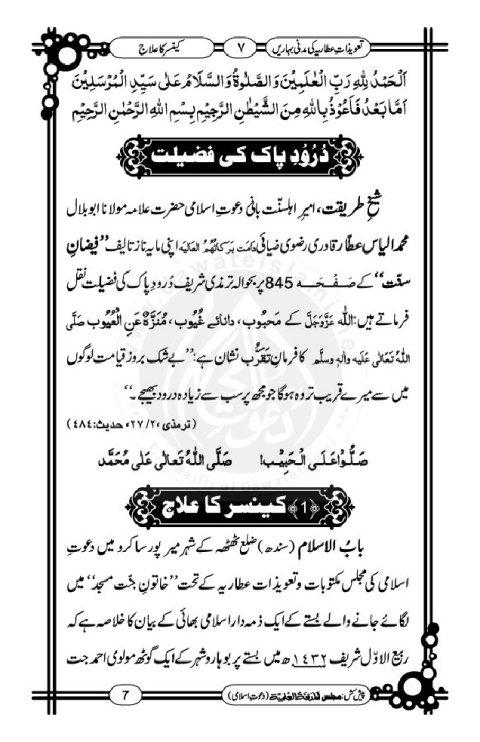 تعویذاتِ عطاریہ کی مدنی بہاریں ۷ کینسر کا علاج
اَلْحَمْدُ لِلّٰہِ رَبِّ الْعٰلَمِیْنَ وَالصَّلٰوۃُ وَالسَّلَامُ عَلٰی سَیِّدِ الْمُرْسَلِیْنَ
اَمَّا بَعْدُ فَاَعُوْذُ بِاللّٰہِ مِنَ الشَّیْطٰنِ الرَّجِیْمِ بِسْمِ اللّٰہِ الرَّحْمٰنِ الرَّحِیْمِ
دُرُودِ پاک کی فضیلت
شیخِ طریقت، امیرِ اہلسنّت بانیِ دعوتِ اسلامی حضرت علامہ مولانا ابو بلال
محمد الیاس عطّار قادری رضوی ضیائی دَامَت بَرَکاتُہُمُ العَالیہ اپنی مایہ ناز تالیف ”فیضانِ
سنّت“ کے صَفْحَہ 845 پر بحوالہ ترمذی شریف دُرودِ پاک کی فضیلت نقل
فرماتے ہیں: اللّٰہ عَزَّوَجَلَّ کے مَحبوب، دانائے غُیوب، مُنَزَّہٌ عَنِ الْعُیوب صَلَّی
اللہُ تَعَالٰی عَلَیہِ وَاٰلِہٖ وسلَّم کا فرمانِ تقرُّب نشان ہے: ”بے شک بروزِ قیامت لوگوں
میں سے میرے قریب تر وہ ہوگا جو مجھ پر سب سے زیادہ درود بھیجے۔“
(ترمذی ۲/ ۲۷، حدیث: ۴۸۴)
صَلُّوْا عَلَی الْحَبِیْب! صَلَّی اللہُ تَعَالٰی عَلٰی مُحَمَّد
﴿1﴾ کینسر کا علاج
بابُ الاسلام (سندھ) ضلع ٹھٹھہ کے شہر میر پور ساکرو میں دعوتِ
اسلامی کی مجلس مکتوبات و تعویذاتِ عطاریہ کے تحت ”خاتونِ جنّت مسجد“ میں
لگائے جانے والے بستے کے ایک ذمہ دار اسلامی بھائی کے بیان کا خلاصہ ہے کہ
ربیع الاوّل شریف ۱۴۳۲ھ میں بستے پر بوہارو شہر کے ایک گوٹھ مولوی احمد جت
پیش کش: مجلس (دعوتِ اسلامی) 7